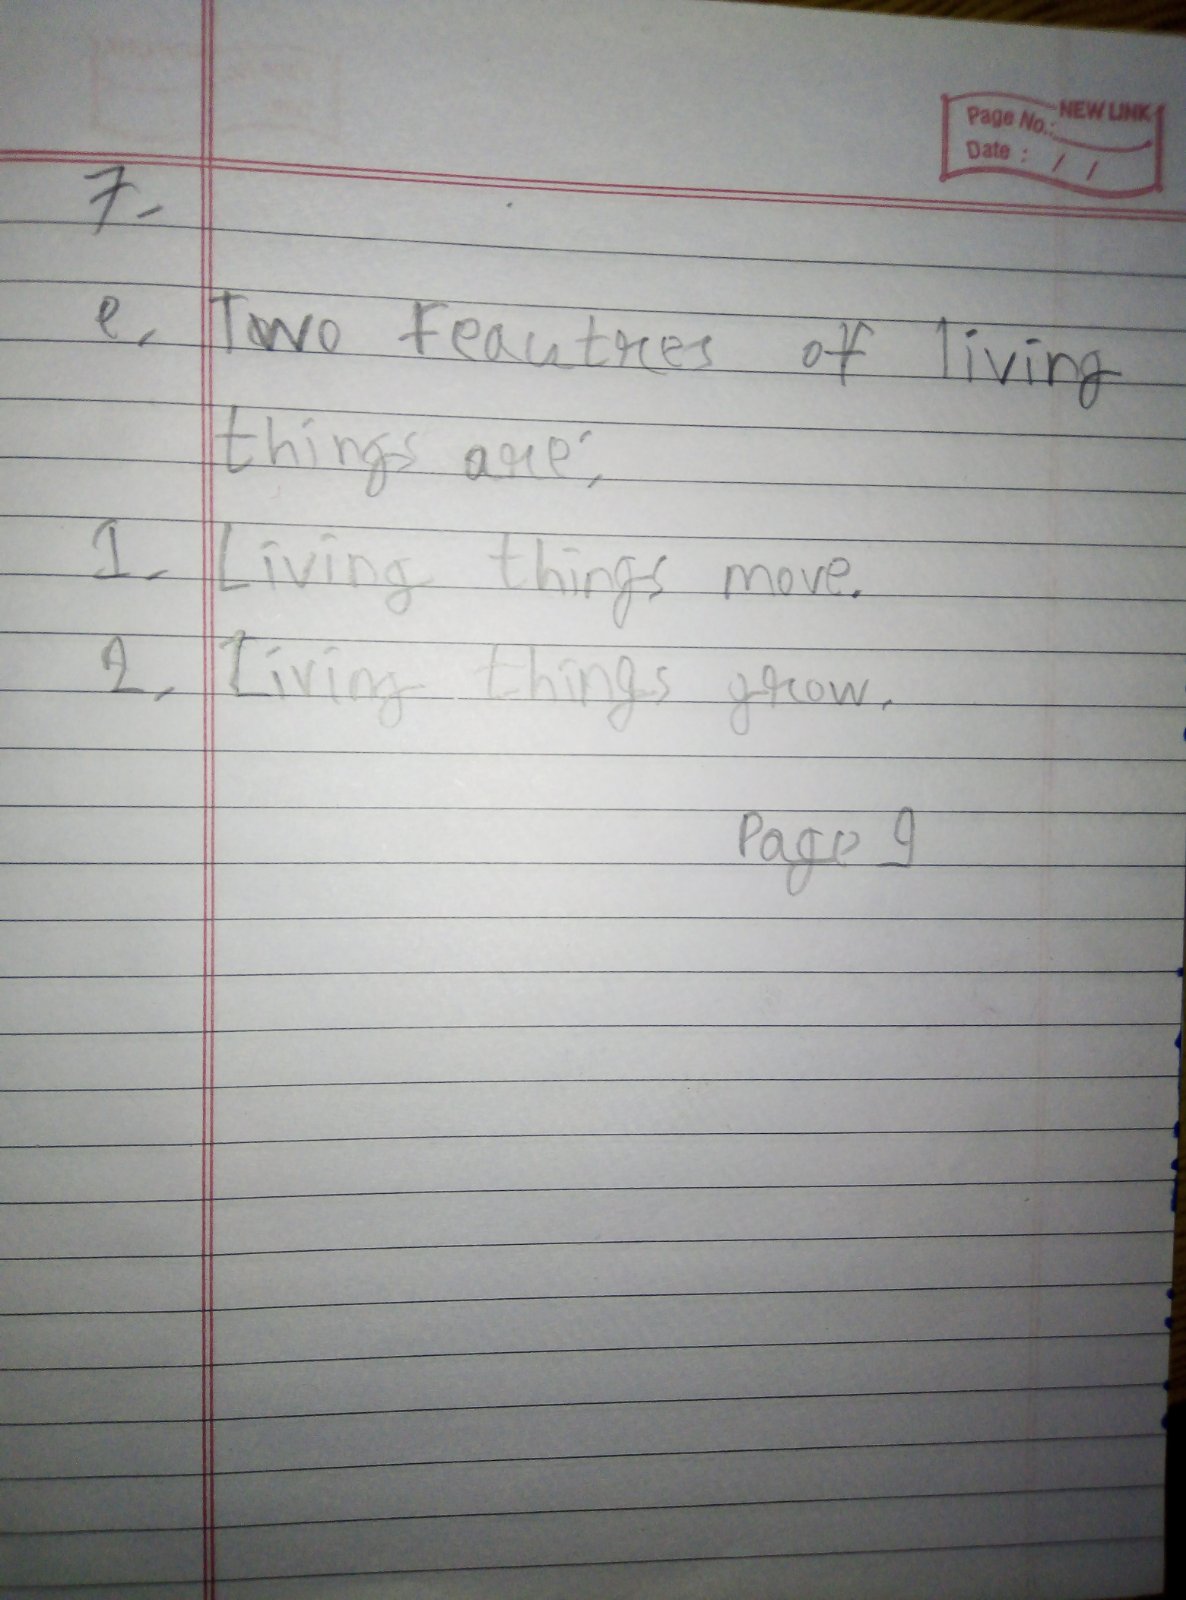 NEW LINK
Page No.:
Date : / /
7.
e. Two Feautres of living
things are;
1. Living things move.
2. Living things grow.
Page 9